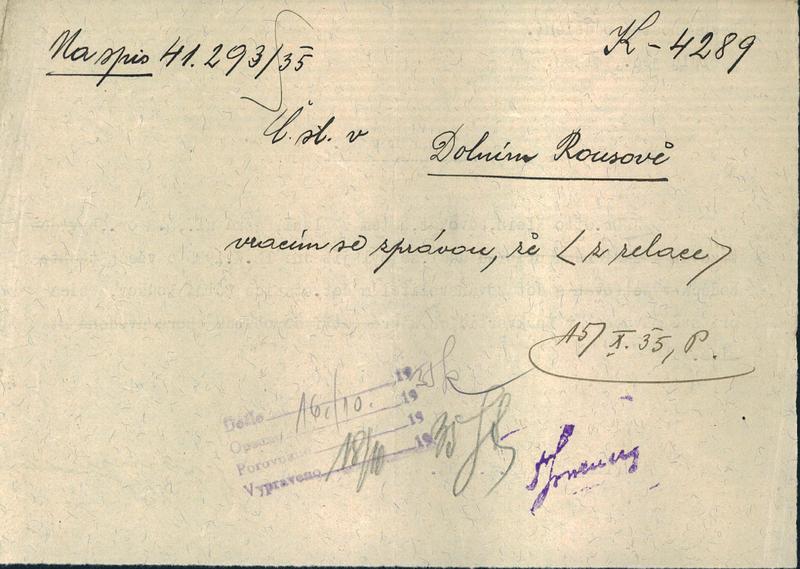 Na spis 41.293/35
K - 4289
Č. st. v
Dolním Rousově
vracím se zprávou, že (z relace)
15/X.35, P.
Došlo 16./10. 1935
Opsáno 19
Porovnáno 19
Vypraveno 18/10 1935